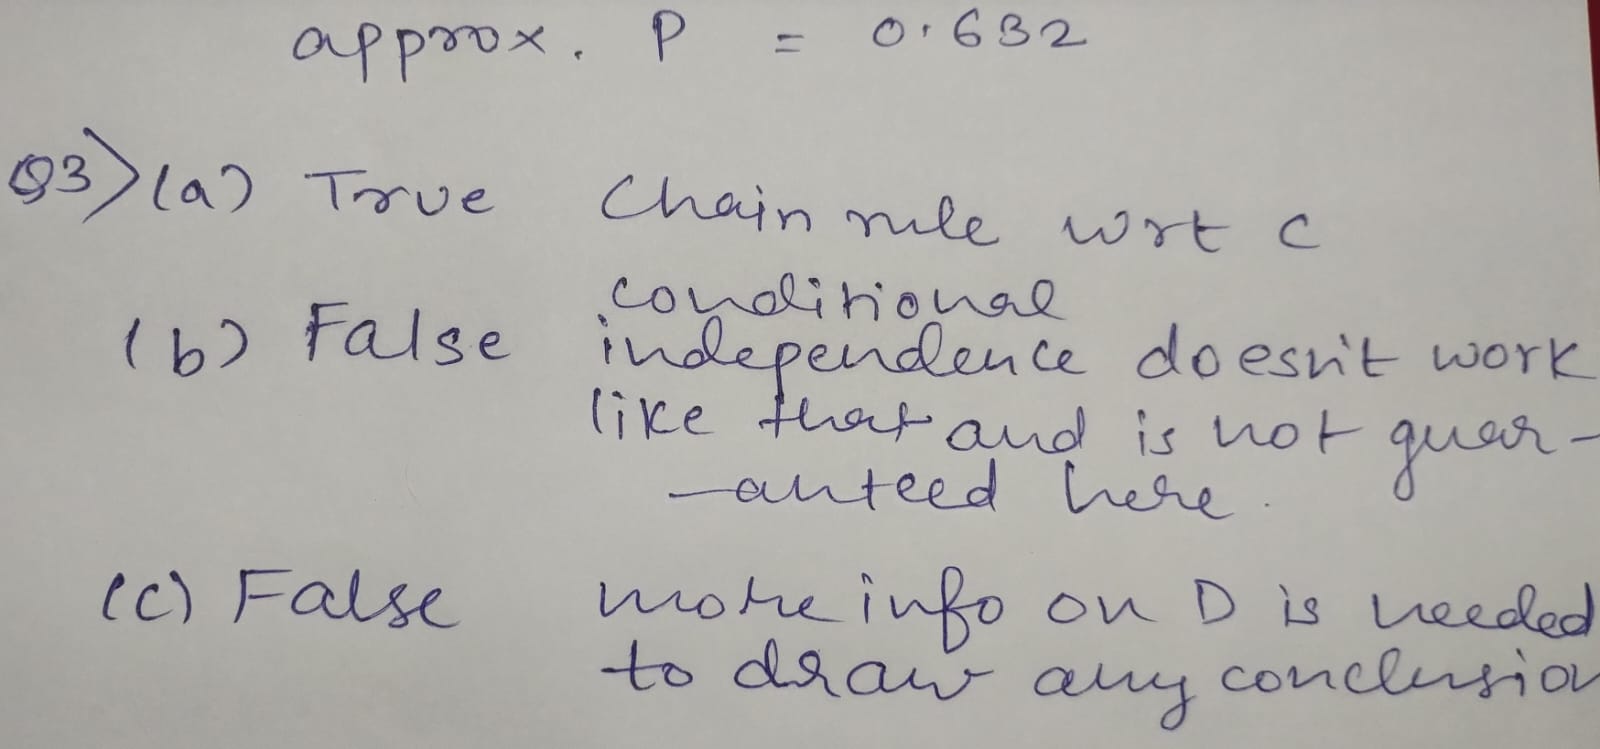 approx. P = 0.632
Q3> (a) True Chain rule wrt C
conditional
(b) False independence doesn't work
like that and is not guar-
-anteed here.
(c) False more info on D is needed
to draw any conclusion